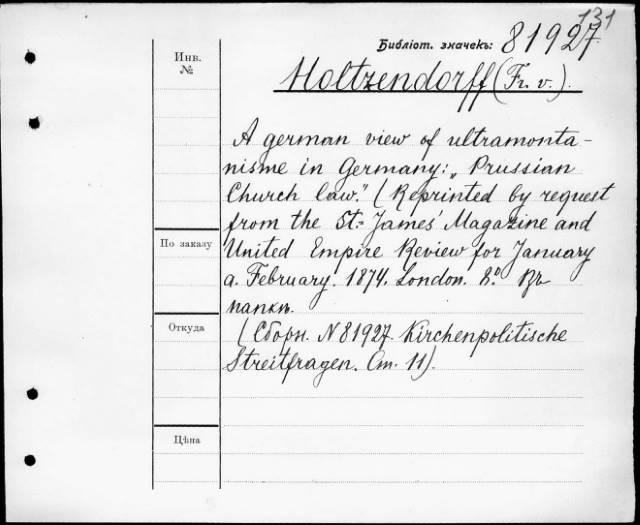 131
Библіот. значекъ: 81927.
Инв.
№
Holtzendorff (Fr. v.).
A german view of ultramonta-
nisme in Germany: „Prussian
Church law." (Reprinted by request
from the St. James' Magazine and
По заказу
United Empire Review for January
a. February. 1874. London. 8.º Въ
папкѣ.
Откуда
(Сборн. N 81927. Kirchenpolitische
Streitfragen. Отт. 11).
Цѣна